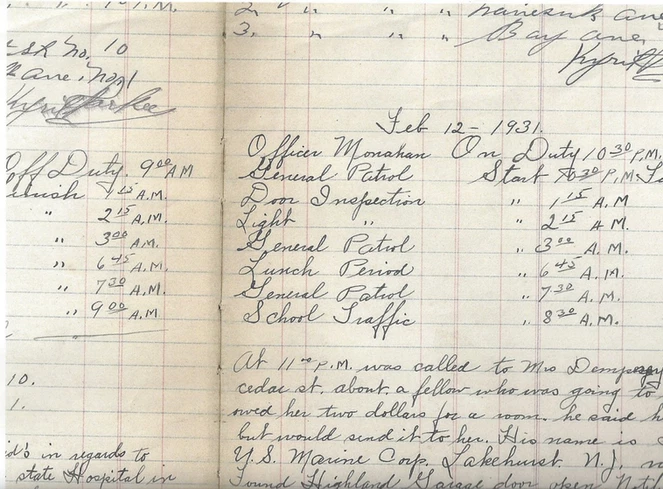 " " " P.M.
esk No. 10
Ave. No. 1
Off Duty. 9 00 AM
Finish 1 15 A.M.
" 2 15 A.M.
" 3 00 A.M.
" 6 45 A.M.
" 7 30 A.M.
" 9 00 A.M.
10.
1.
id's in regards to
state Hospital in
2. " " " Ave
3. " " " Bay ave
Feb 12 - 1931.
Officer Monahan On Duty 10 30 P.M.
General Patrol Start 10 30 P.M.
Door Inspection " 1 15 A.M
Light " " 2 15 A M.
General Patrol " 3 00 A.M.
Lunch Period " 6 45 A.M.
General Patrol " 7 30 A.M.
School Traffic " 8 30 A.M.
At 11 00 P.M. was called to Mrs Dempsey
cedar st. about a fellow who was going to
owed her two dollars for a room. he said h
but would send it to her. His name is
U.S. Marine Corp. Lakehurst. N.J.
Found Highland Garage door open